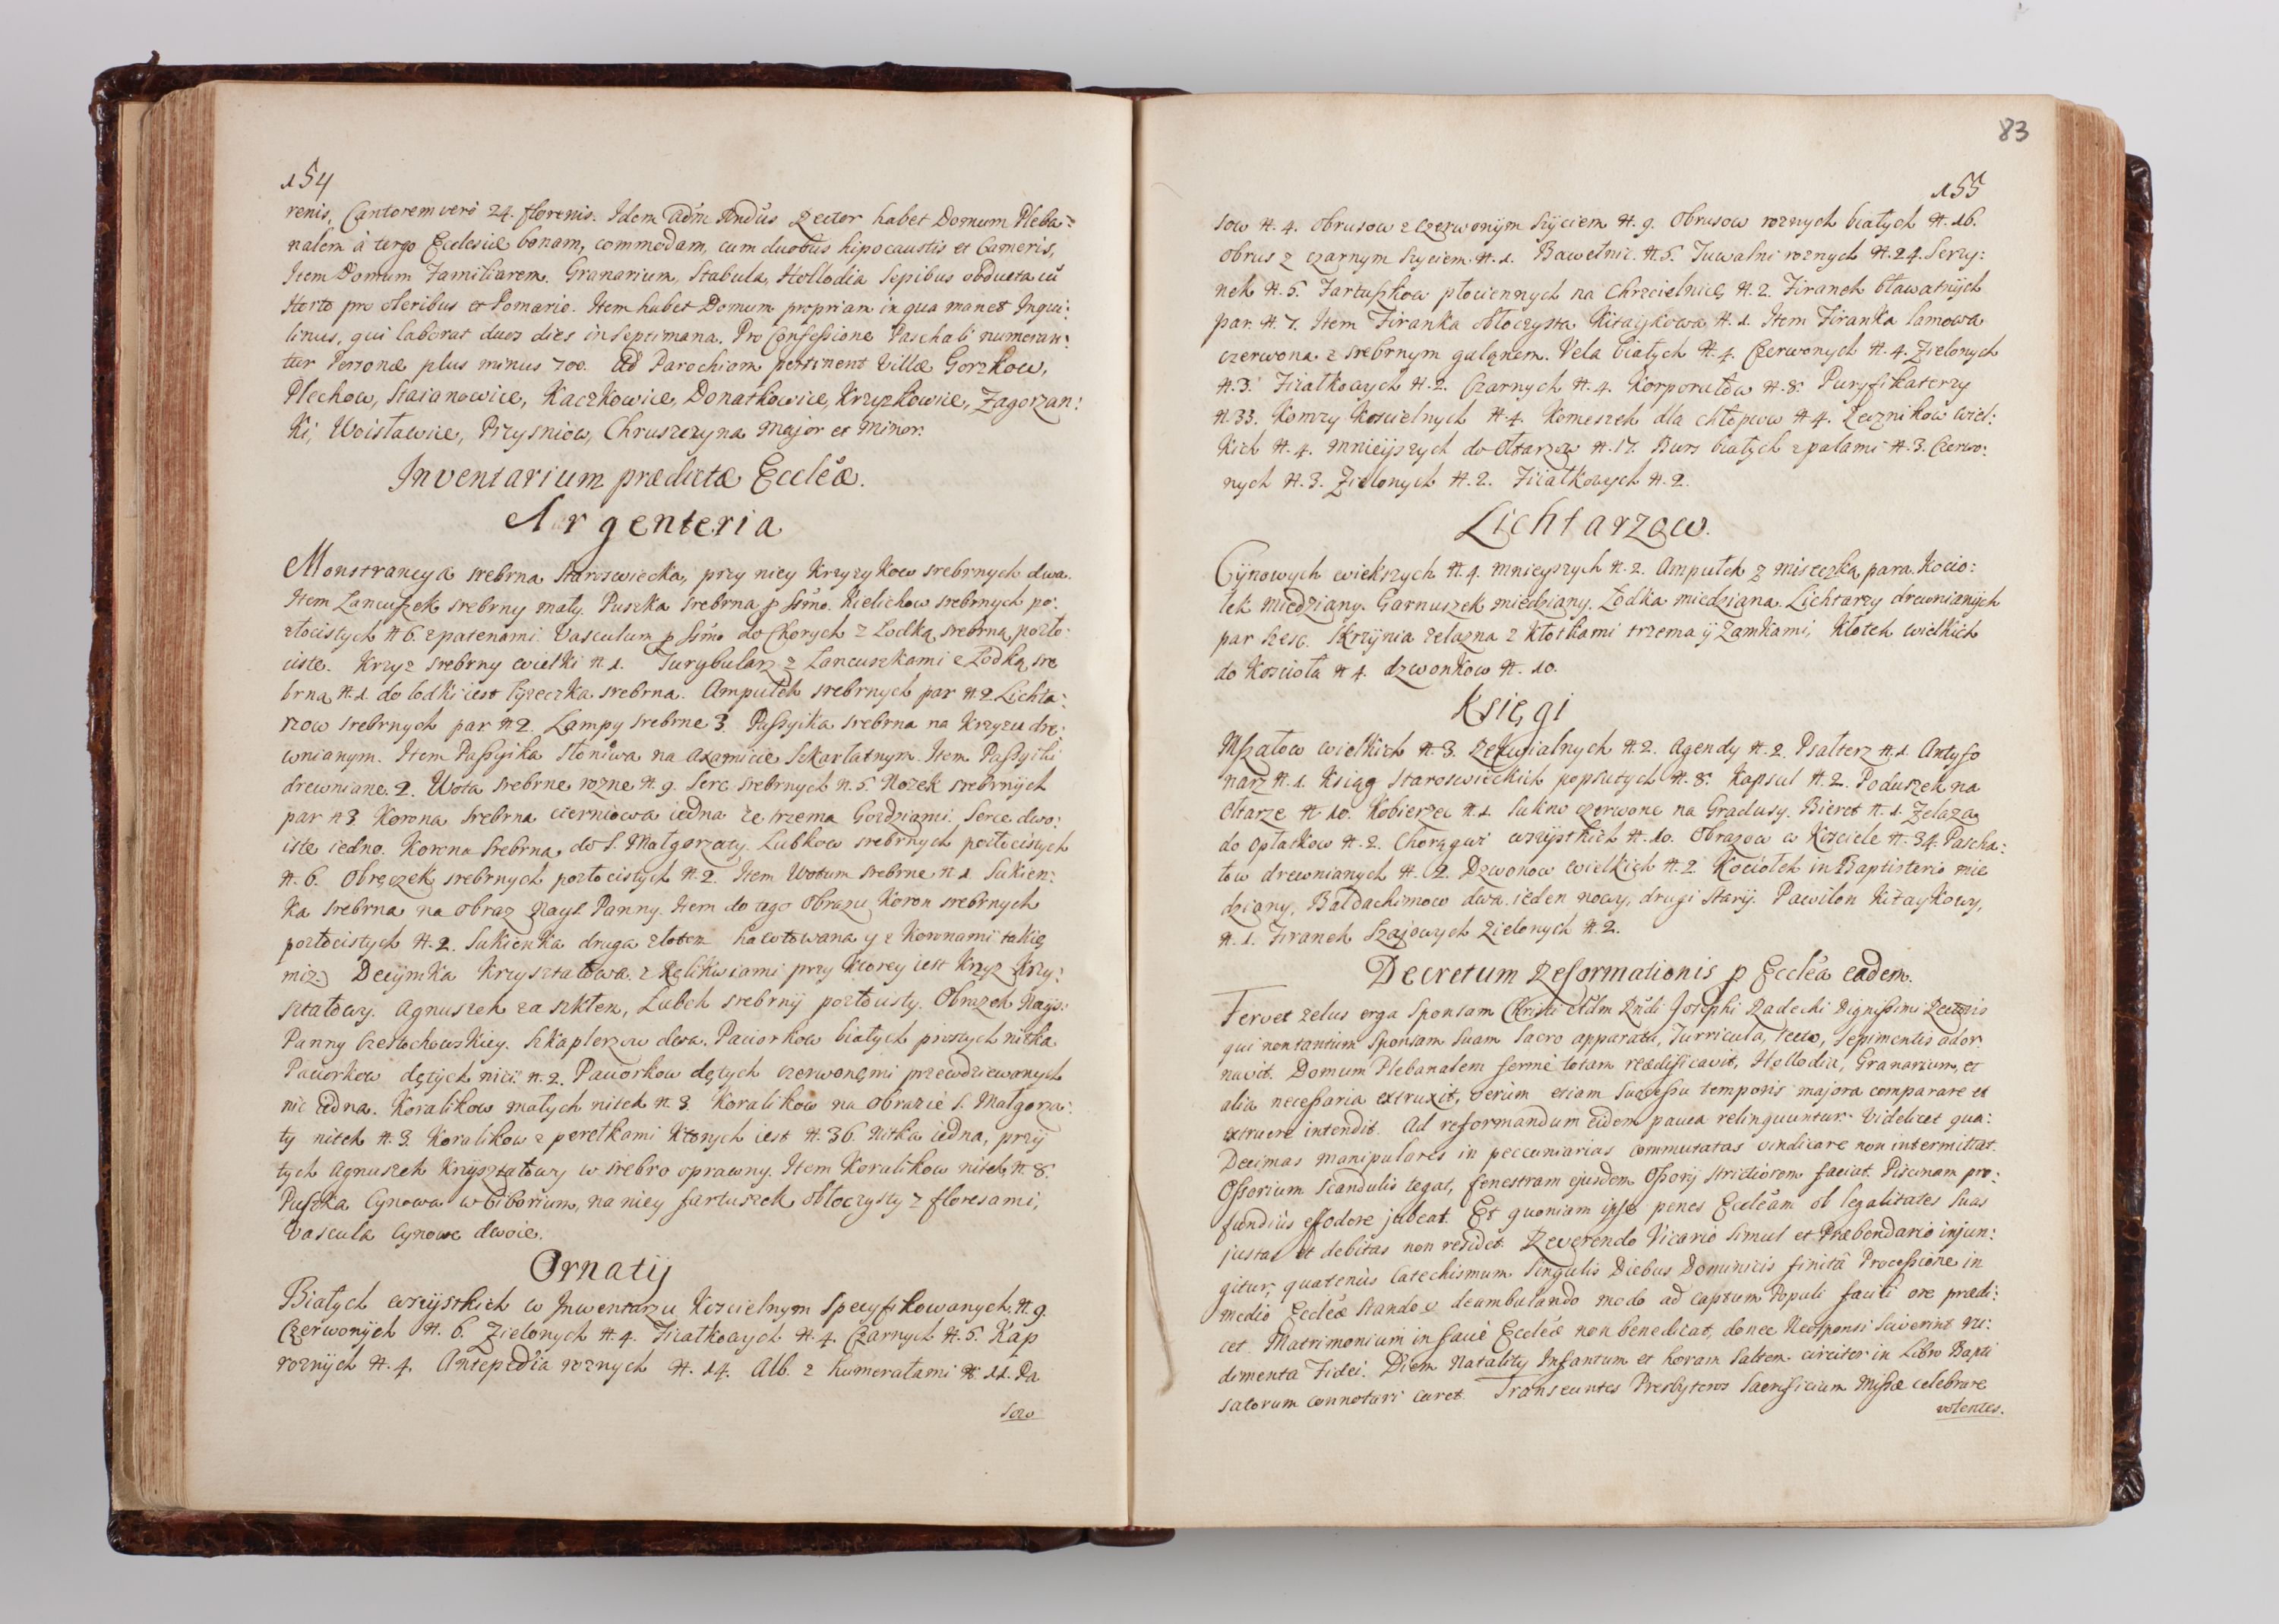 154
renis, Cantorem verò 24. florenis. Idem Adm Rndus Rector habet Domum Pleba:
nalem à tergo Ecclesiæ bonam, commodam, cum duobus hipocaustis et Cameris,
Item Domum Familiarem. Granarium, Stabula, Hollodia Sepibus obducta cũ
Horto pro oleribus et Pomario. Item habet Domum propriam in qua manet Inqui:
linus, qui laborat duos dies in septimana. Pro Confessione Paschali numeran:
tur Personæ plus minus 700. Ad Parochiam pertinent Villæ Gorzkow,
Plechow, Stasanowice, Kaczkowice, Donatkowice, Krzyzkowice, Zagorzan:
Ki, Woisławice, Przysniow, Chruszczyna Major et Minor.
Inventarium prædictæ Eccleæ.
Argenteria
Monstrancya srebrna Staroswiecka, przy niey Krzyzykow srebrnych dwa.
Item Lancuszek srebrny mały. Puszka srebrna p Ssmo. Kielichow srebrnych po:
złocistych N 6. z patenami. Vasculum p Ssmo do Chorych z Lodką srebrną pozło:
ciste. Krzyz srebrny wielki N 1. Turybularz z Lancuszkami z Łodką sre
brną N. 1. do lodki iest łyzeczka srebrna. Ampułek srebrnych par N 2 Lichta:
rzow srebrnych par N 2. Lampy srebrne 3. Passyika srebrna na Krzyzu dre:
wnianym. Item Passyika Słoniwa na Axamicie Szkarłatnym. Item Passyiki
drewniane. 2. Wota srebrne rozne N. 9. Serc srebrnych N. 5. Nozek srebrnych
par N 3. Korona srebrna cierniowa iedna ze trzema Gozdziami. Serce dwo:
iste iedno. Korona Srebrna do S. Małgorzaty. Lubkow srebrnych pozłocistych
N. 6. Obręczek srebrnych pozłocistych N. 2. Item Wotum srebrne N 1 Sukien:
ka srebrna na obraz Nays. Panny. Item do tego Obrazu Koron srebrnych
pozłocistych N. 2. Sukienka druga złotem hawtowana y z Koronami takię
miz. Decymka Krzyształowa. z Relikwiami przy Ktorey iest Krzyz Krzy:
ształowy. Agnuszek za szkłem, Lubek srebrny pozłocisty. Obrazek Nays:
Panny Częstochowskiey. Szkaplerzow dwa. Paciorkow białych prostych nitka
Paciorkow dętych nici N. 2. Paciorkow dętych czerwonemi przewdziewanych
nic iedna. Koralikow małych nitek N. 3. Koralikow na obrazie S. Małgorza:
ty nitek N. 3. Koralikow z perełkami Ktorych iest N. 36. Nitka iedna, przy
tych Agnuszek Krzyształowy w srebro oprawny. Item Koralikow nitek N 8.
Puszka Cynowa w Ciborium, na niey fartuszek obłoczysty z floresami,
Vascula Cynowe dwoie.
Ornaty
Białych wszystkich w Inwentarzu Koscielnym specyfikowanych N. 9.
Czerwonych N. 6. Zielonych N. 4. Fiałkowych N. 4. Czarnych N. 5. Kap
roznych N. 4. Antepedia roznych N. 14. Alb. z humerałami N. 11. Pa
sow
83
155
sow N. 4. Obrusow z Czerwonym szyciem N. 9. Obrusow roznych białych N. 16.
Obrus z czarnym szyciem N. 1. Bawelnic. N. 5. Tuwalni roznych N. 24. Serzy:
nek N. 5. Fartuszkow płociennych na Chrzcielnicę N. 2. Firanek bławatnych
par N. 7. Item Firanka obłoczysta Kitaykowa N. 1. Item Firanka lamowa
czerwona z srebrnym galonem. Vela białych N. 4. Czerwonych N. 4. Zielonych
N. 3. Fiałkowych N. 2. Czarnych N. 4. Korporałow N. 8. Puryfikaterzy
N. 33. Komzy Koscielnych N. 4. Komeszek dla chłopcow N 4. Ręcznikow wiel:
kich N. 4. mnieyszych do Ołtarzow N. 17. Burs białych z palami N. 3. Czerwo:
nych N. 3. Zielonych N. 2. Fiiałkowych N. 2.
Lichtarzow.
Cynowych wiekszych N. 4. mnieyszych N. 2. Ampułek z miseczką para. Kocio:
łek miedziany. Garnuszek miedziany. Łodka miedziana. Lichtarzy drewnianych
par szesc. Skrzynia zelazna z kłotkami trzema y Zamkami, Kłotek wielkich
do Koscioła N 4. dzwonkow N. 10.
Księgi
Mszałow wielkich N. 3. Rekwialnych N. 2. Agendy N. 2. Psałterz N. 1. Antyfo
narz N. 1. Ksiąg Staroswieckich popsutych N. 8. Kapsul N. 2. Poduszek na
Ołtarze N. 10. Kobierzec N. 1. Sukno czerwone na Gradusy. Biret N. 1. Zelaza
do opłatkow N. 2. Chorągwi wszystkich N. 10. Obrazow w Kosciele N. 34. Pascha:
łow drewnianych N. 2. Dzwonow wielkich N. 2. Kociołek in Baptisterio mie
dziany, Baldachimow dwa. ieden nowy, drugi stary. Pawilon Kitaykowy,
N. 1. Firanek Szajowych zielonych N. 2.
Decretum Reformationis p Ecclea eadem.
Fervet zelus erga Sponsam Christi Adm Rndi Josephi Radecki Dignissimi Rectoris
qui non tantum Sponsam Suam Sacro apparatu, Turricula, tecto, Sepimentis ador
navit. Domum Plebanalem fermè totam reædificavit, Hollodia, Granarium, et
alia necessaria extruxit, verùm etiam successu temporis majora comparare et
extruere intendit. Ad reformandum eidem pauca relinquuntur. Videlicet qua:
Decimas manipulares in peccuniarias commutatas vindicare non intermittat.
Ossorium Scandulis tegat, fenestram ejusdem Ossorij strictiorem faciat. Piscinam pro:
fundiùs effodere jubeat. Et quoniam ipse penes Eccleam ob legalitates Suas
justas et debitas non residet. Reverendo Vicario Simul et Præbendario injun:
gitur, quatenùs Catechismum Singulis Diebus Dominicis finitâ Processione in
medio Eccleæ stando v. deambulando modo ad captum Populi facili ore prædi:
cet. Matrimonium in facie Eccleæ non benedicat, donec Neosponsi sciverint ru:
dimenta Fidei. Diem Natality Infantum et horam Saltem circiter in Libro Bapti
satorum connotari curet. Transeuntes Presbyteros Sacrificium Missæ celebrare
volentes.